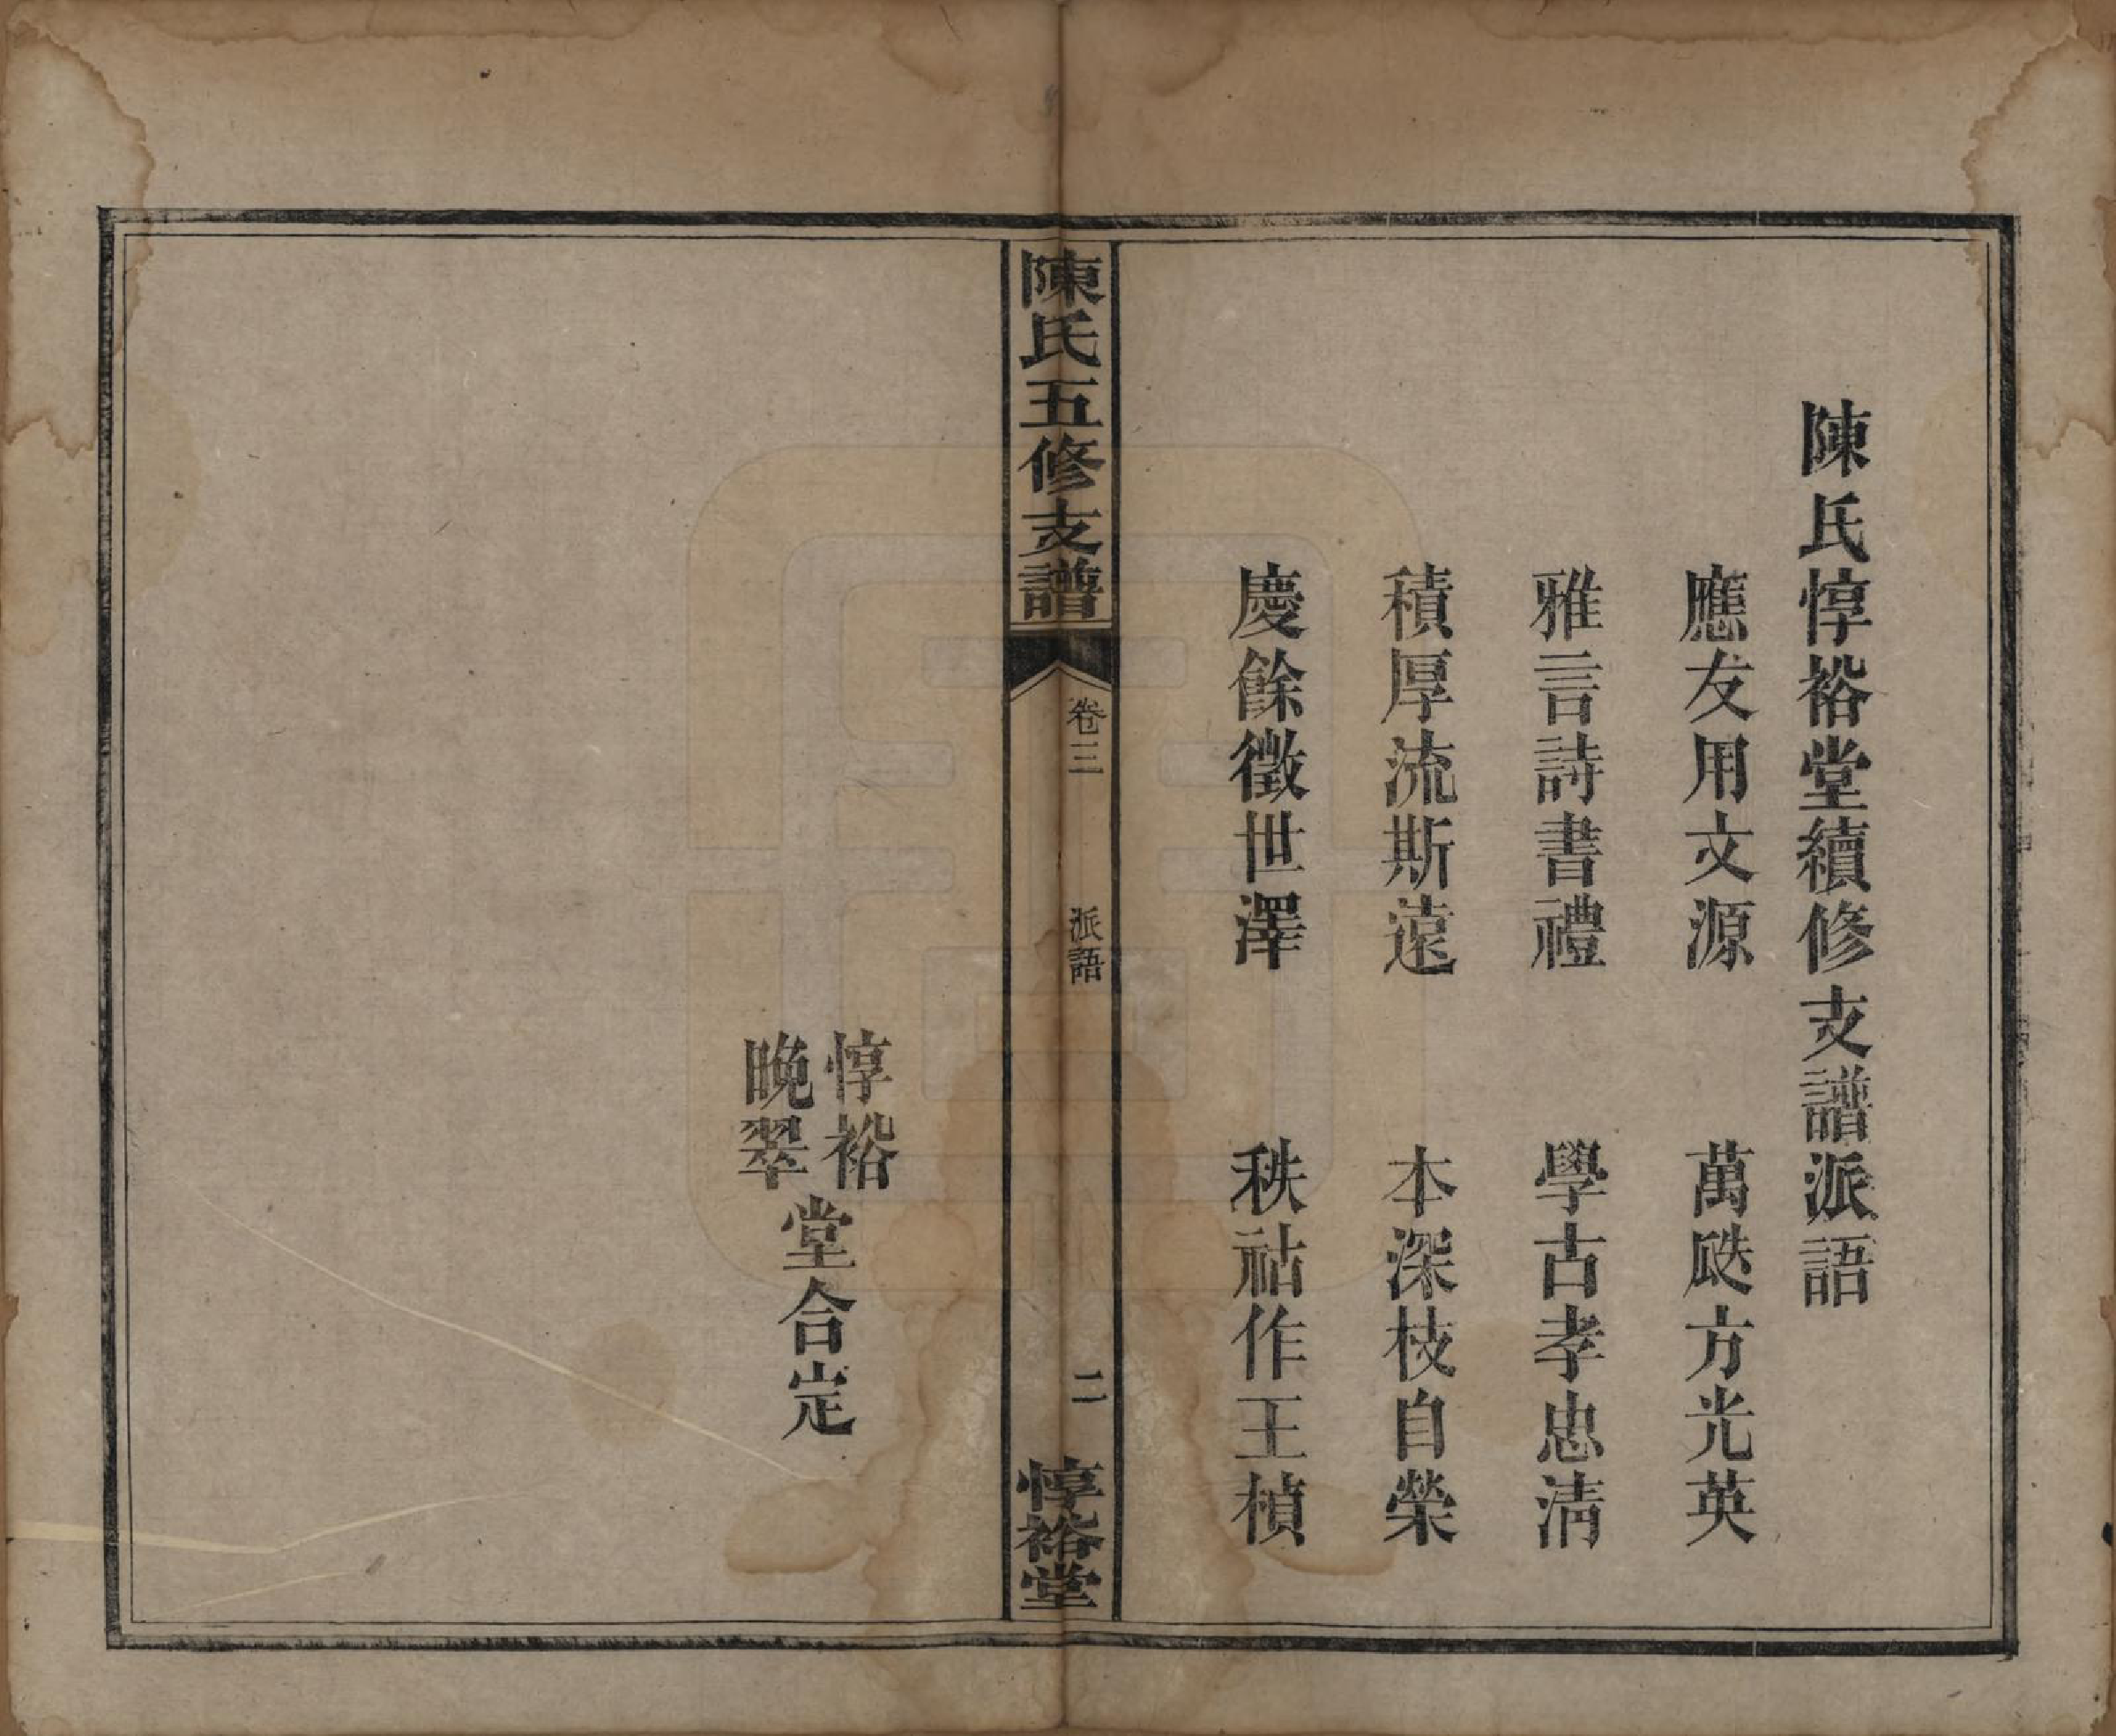 陳氏惇裕堂續修支譜派語
應友用文源　萬瓞方光英
雅言詩書禮　學古孝忠淸
積厚流斯遠　本深枝自榮
慶餘徵世澤　秩祜作王楨
陳氏五修支譜
卷三
派語
二
惇裕堂
惇裕
晚翠
堂合定